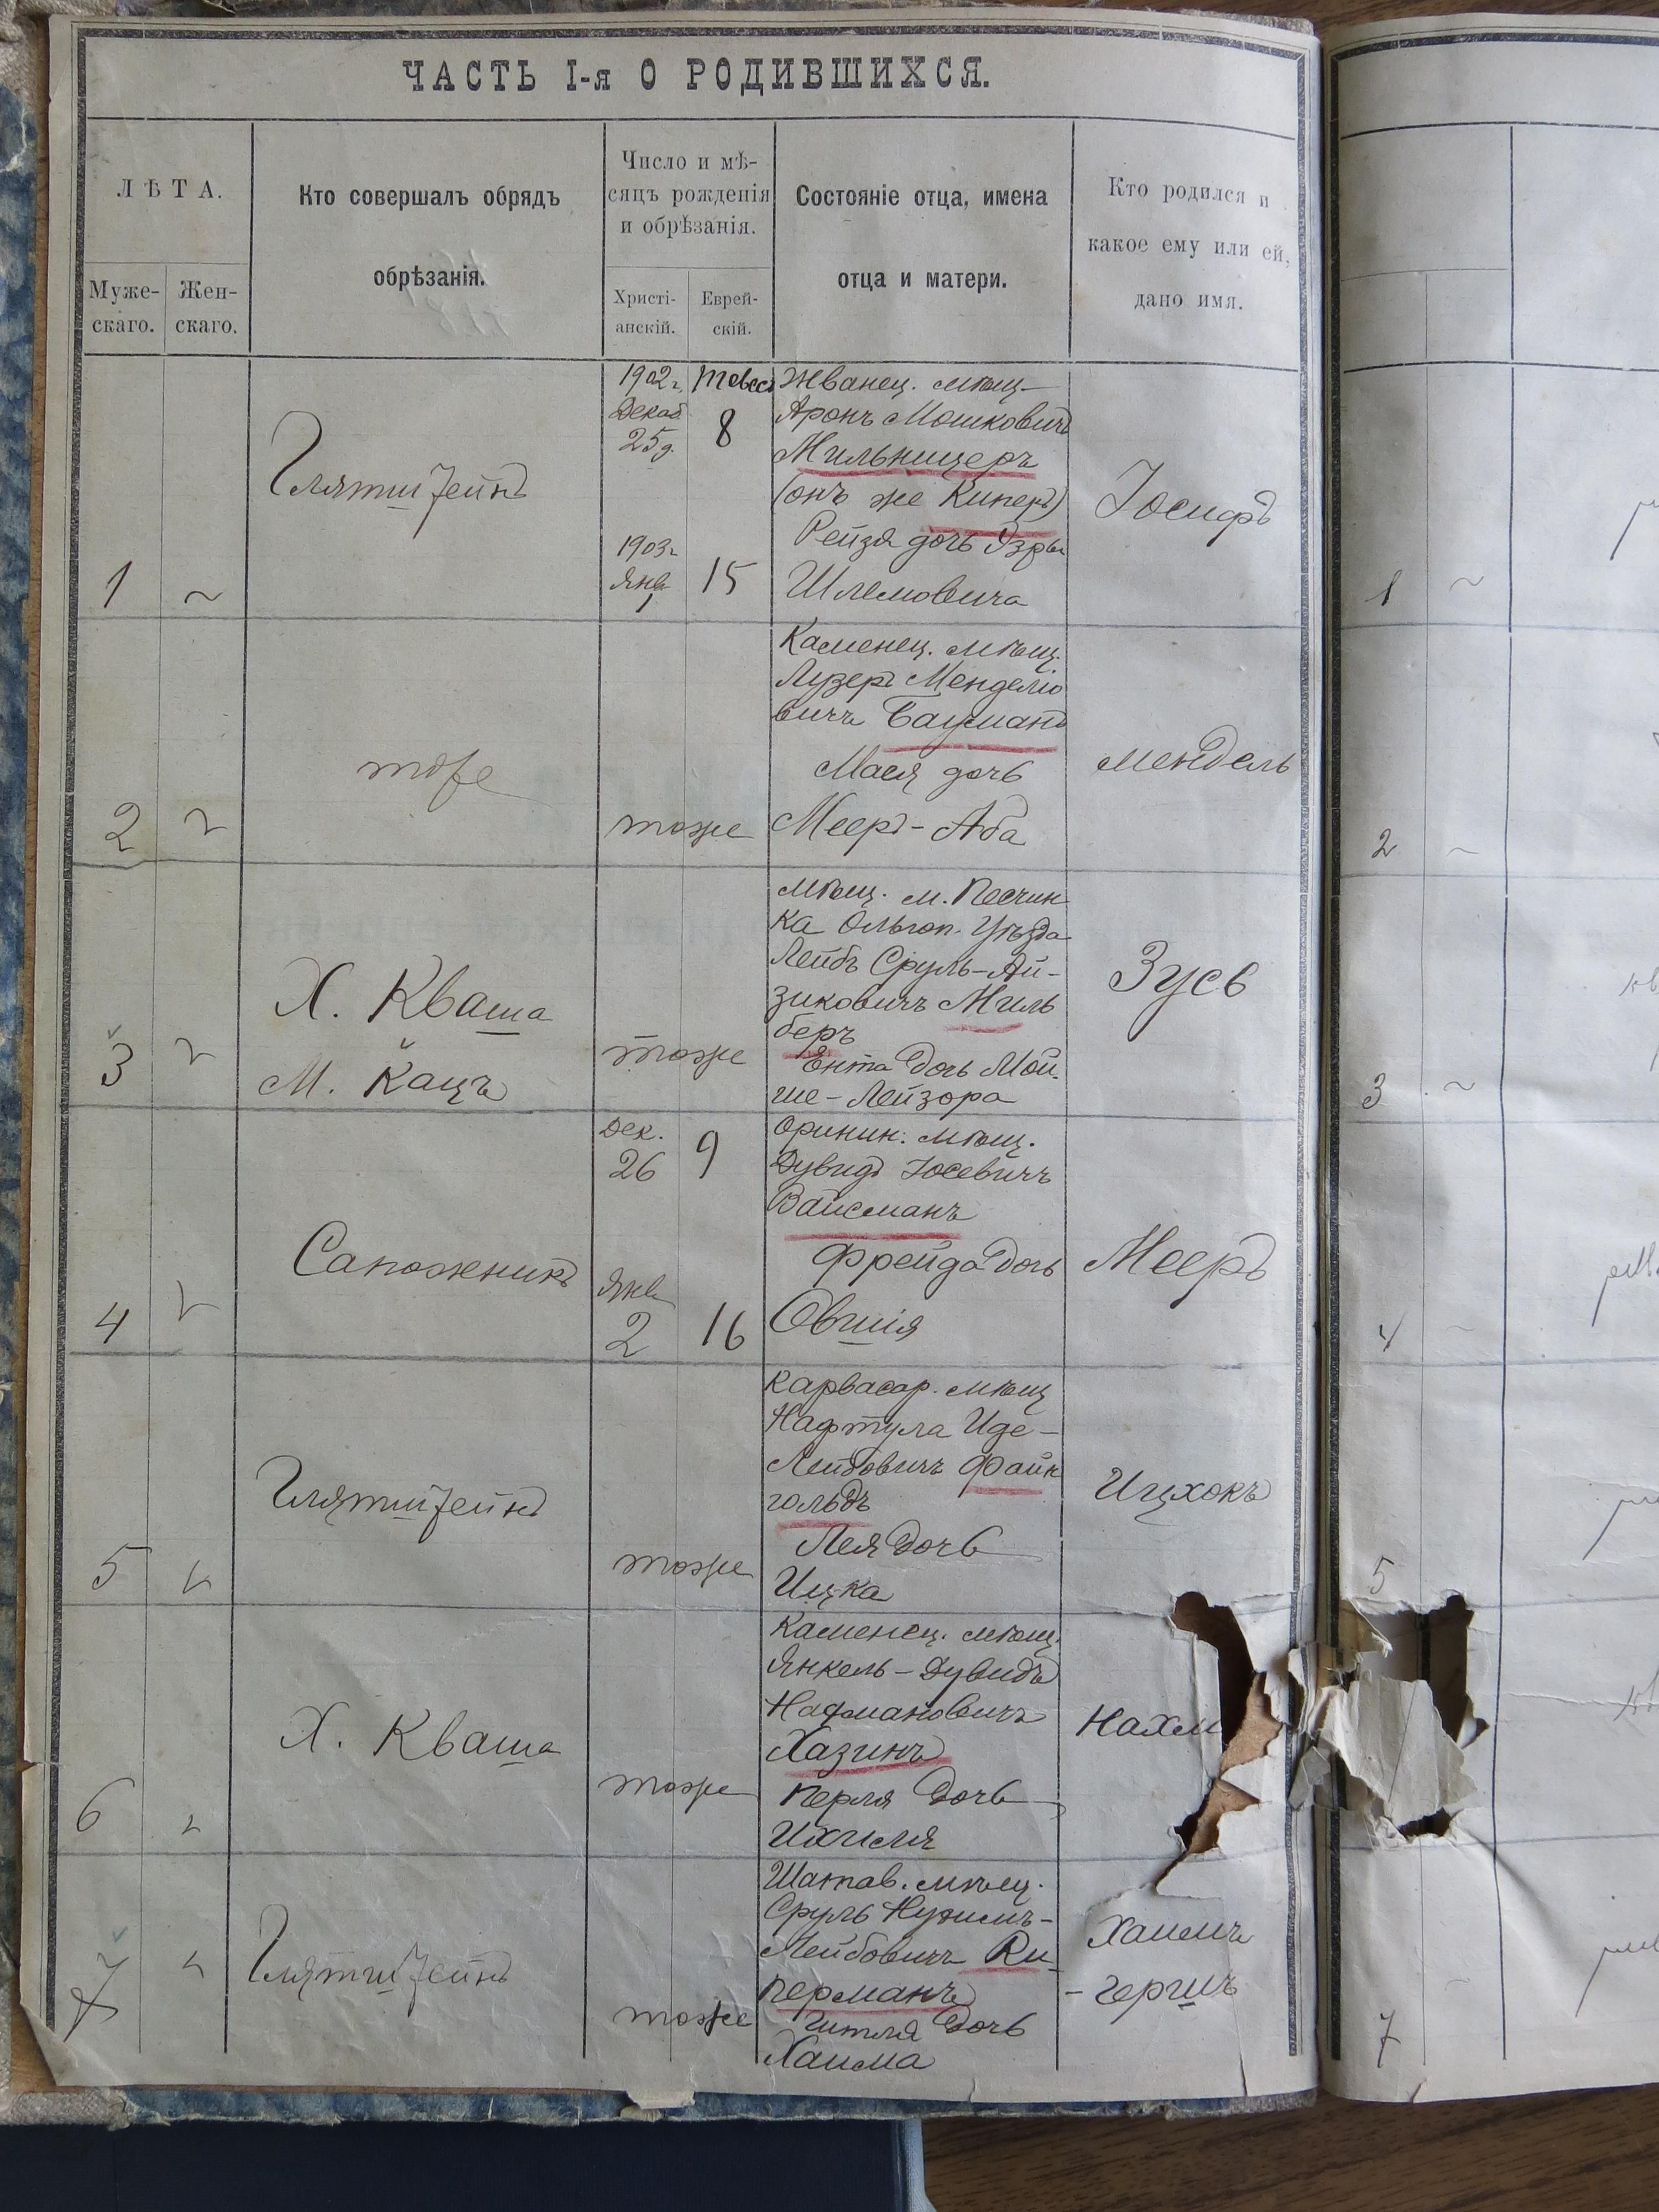 ЧАСТЬ I-я О РОДИВШИХСЯ.
ЛѢТА.
Муже-
скаго.
Жен-
скаго.
Кто совершалъ обрядъ
обрѣзанія.
Число и мѣ-
сяцъ рожденія
и обрѣзанія.
Христі-
анскій.
Еврей-
скій.
Состояніе отца, имена
отца и матери.
Кто родился и
какое ему или ей,
дано имя.
1
~
Глятштейнъ
1902 г.
Декаб
25 д.
8
1903 г
Янв
1
15
Жванец. мѣщ.
Аронъ Мошковичъ
Мильницеръ
(онъ же Киперъ)
Рейзя дочь Эзры
Шлемовича
Іосифъ
2
тоже
тоже
Каменец. мѣщ.
Лузеръ Менделіо
вичъ Бауманъ
Мася дочь
Мееръ-Аба
Мендель
3
Х. Кваша
М. Кацъ
тоже
мѣщ. м. Песчин
ка Ольгоп. Уѣзда
Лейбъ Сруль-Ай-
зиковичъ Миль
беръ
Ента дочь Мой-
ше-Лейзора
Зусь
4
Сапожникъ
Дек.
26
9
Янв
2
16
Оринин. мѣщ.
Дувидъ Іосевичъ
Вайсманъ
Фрейда дочь
Овшія
Мееръ
5
Глятштейнъ
тоже
Карвасар. мѣщ
Нафтула Иде-
Лейбовичъ Файн
гольдъ
Лея дочь
Ицка
Ицхокъ
6
Х. Кваша
тоже
Каменец. мѣщ.
Янкель-Дувидъ
Нахмановичъ
Хазинъ
Перля дочь
Ихиля
Нахм
7
Глятштейнъ
тоже
Шатав. мѣщ.
Сруль Нухимъ-
Лейбовичъ Ки-
перманъ
Гитля дочь
Хаима
Хаимъ
-Гершъ
1
~
2
~
3
~
4
~
5
7
~